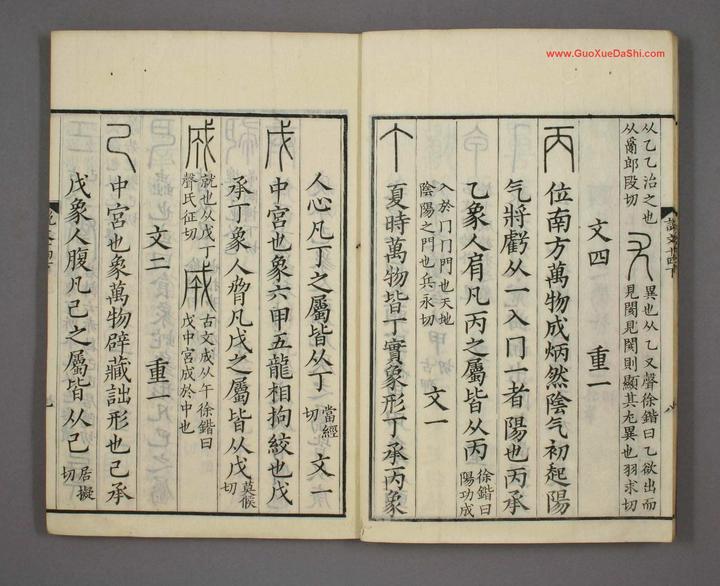 www.GuoXueDaShi.com
說文十四下
八
从乙乙治之也
从𤔔郎段切
尤
異也从乙又聲徐鍇曰乙欲出而
見閡見閡則顯其尢異也羽求切
文四 重一
丙位南方萬物成炳然陰气初起陽
气將虧从一入冂一者陽也丙承
乙象人肩凡丙之屬皆从丙
徐鍇曰
陽功成
入於冂冂門也天地
陰陽之門也兵永切
文一
丁夏時萬物皆丁實象形丁承丙象
人心凡丁之屬皆从丁
當經
切
文一
戊中宮也象六甲五龍相拘絞也戊
承丁象人脅凡戊之屬皆从戊
莫候
切
成
就也从戊丁
聲氏征切
成
古文成从午徐鍇曰
戊中宮成於中也
文二 重一
己中宮也象萬物辟藏詘形也己承
戊象人腹凡己之屬皆从己
居擬
切
九